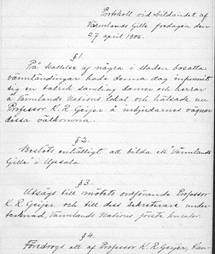 Protokoll vid bildandet af
Vermlands Gille fredagen den
27 april 1906.
§ 1.
På kallelse af några i staden bosatta
värmländingar hade denna dag infunnit
sig en talrik samling damer och herrar
å Värmlands Nations lokal och hälsade nu
Professor K. R. Geijer å inbjudarnes vägnar
dessa välkomna.
§ 2.
Beslöts enhälligt att bilda ett "Värmlands
Gille" i Upsala.
§ 3.
Utsågs till mötets ordförande Professor
K. R. Geijer och till dess Sekreterare under-
tecknad, Värmlands Nations förste kurator.
§ 4.
Föredrogs ett af Professor K. R. Geijer,